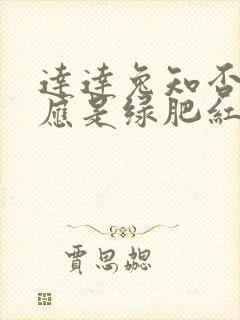 達達兔知否
應是绿肥紅
賈思勰